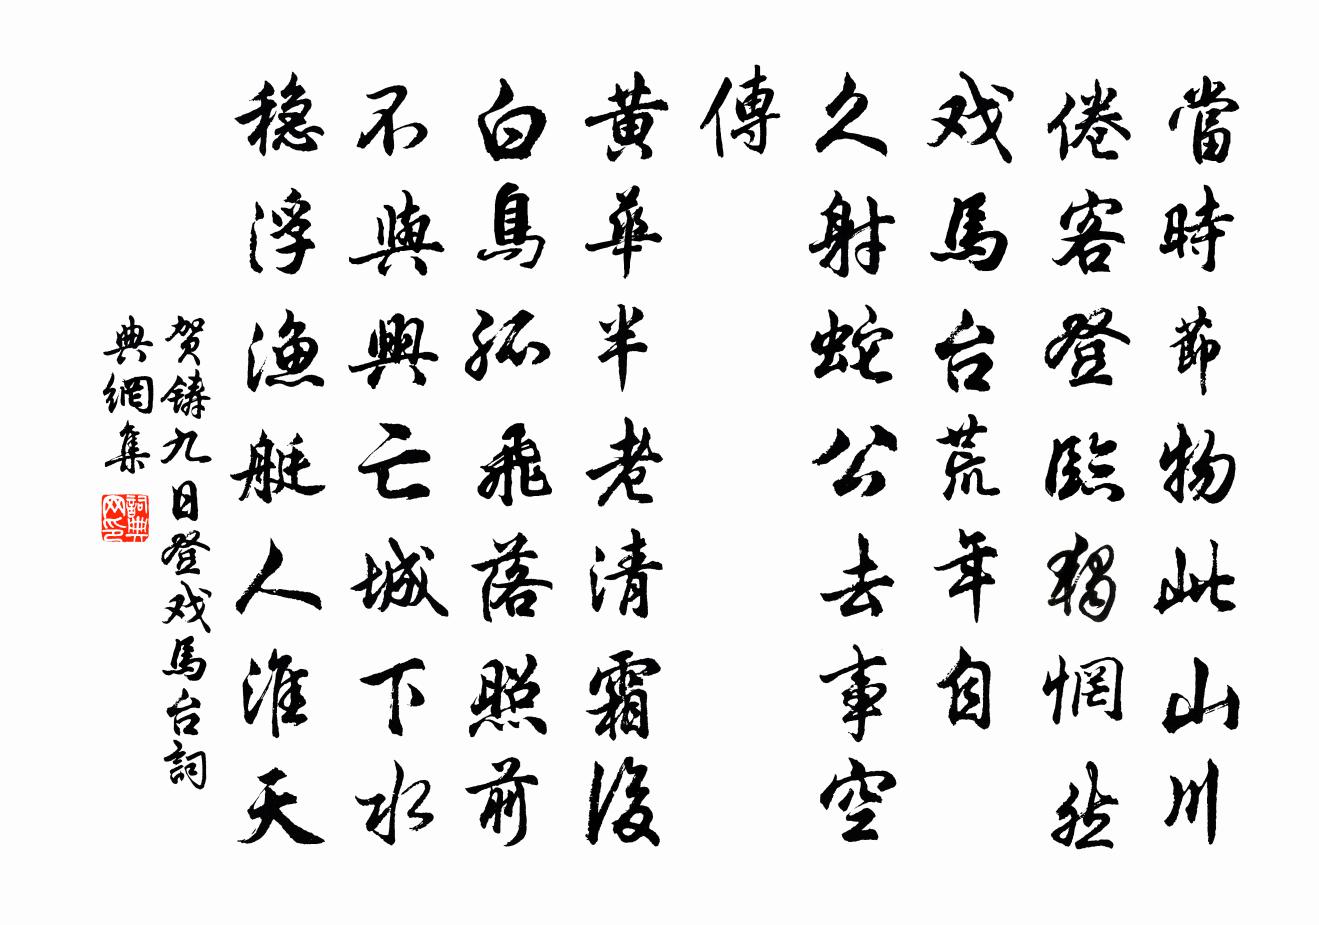 當時節物此山川
倦客登臨獨惘然
戏馬台荒年自
久射蛇公去事空
傳
黃華半老清霜後
白鳥孤飛落照前
不與興亡城下水
稳浮漁艇入淮天
贺鑄九日登戏馬台詞
典網集
詞典网印